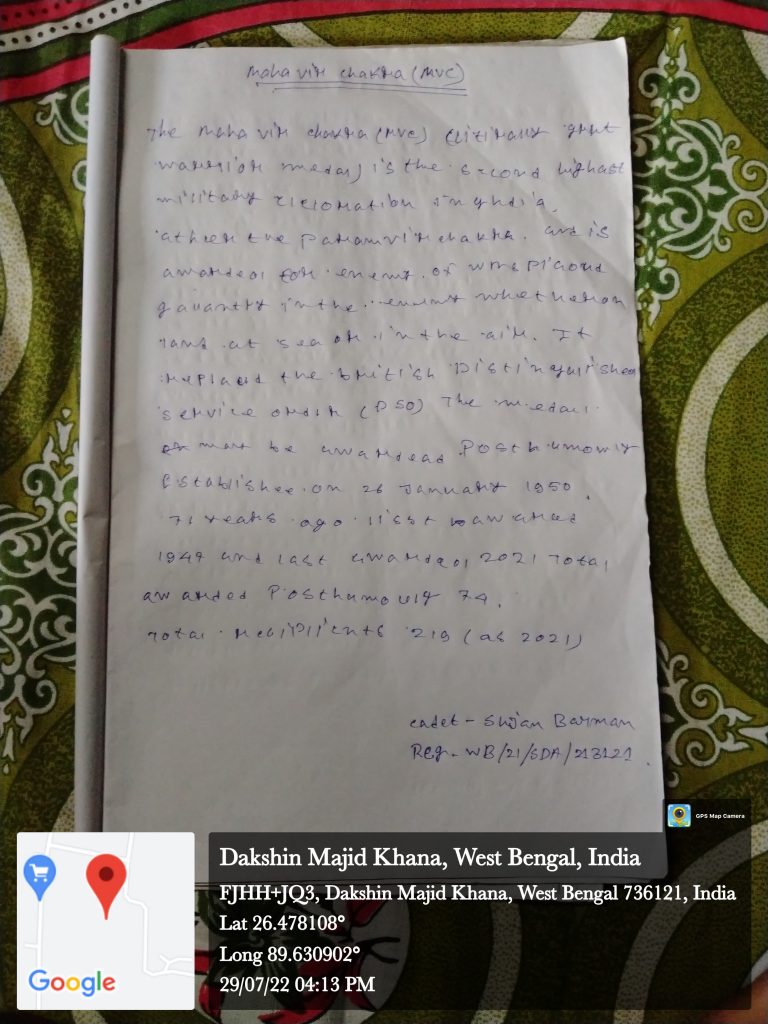 Maha Vir Chakra (MVC)
The Maha Vir Chakra (MVC) (Litirally great
warrior medal) is the second highast
military in
the Paramvir chakra. and is
awarded for enemy of
in the enemy whether on
land at sea or in the air. It
replaced the british Distinguished
service order (DSO) The medal
or may be awardead Posthumously
Establishee on 26 January 1950,
71 years ago awarded
1947 and last awarded 2021 Total
awarded Posthumously 74,
Total 219 (as 2021)
cadet - Barman
Reg. WB/21/SDA/213121.
GPS Map Camera
Dakshin Majid Khana, West Bengal, India
FJHH+JQ3, Dakshin Majid Khana, West Bengal 736121, India
Lat 26.478108°
Long 89.630902°
29/07/22 04:13 PM
Google